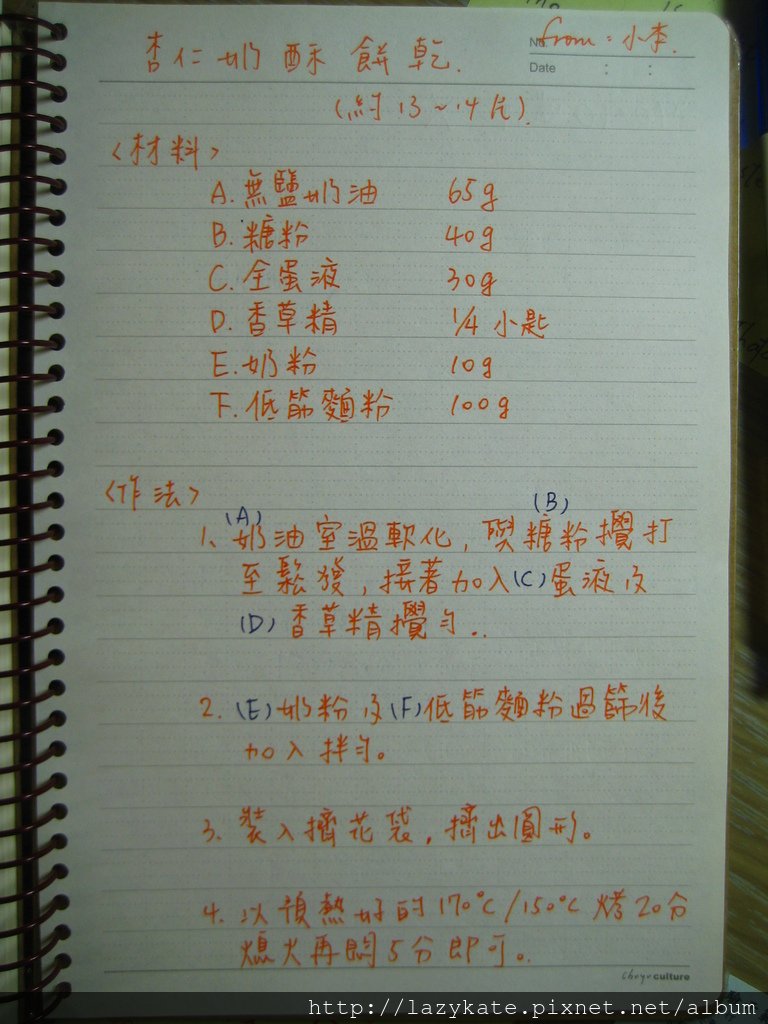 No from: 小李.
Date : :
杏仁奶酥餅乾.
(約13~14片).
<材料>
A. 無鹽奶油 65g
B. 糖粉 40g
C. 全蛋液 30g
D. 香草精 1/4 小匙
E. 奶粉 10g
F. 低筋麵粉 100g
<作法>
(A) (B)
1、奶油室溫軟化, 與糖粉攪打
至鬆發, 接著加入(C)蛋液及
(D) 香草精攪勻..
2. (E)奶粉及(F)低筋麵粉過篩後
加入拌勻。
3. 裝入擠花袋, 擠出圓形。
4. 以預熱好的170°C/150°C 烤20分
熄火再悶5分即可。
culture
http://lazykate.pixnet.net/album